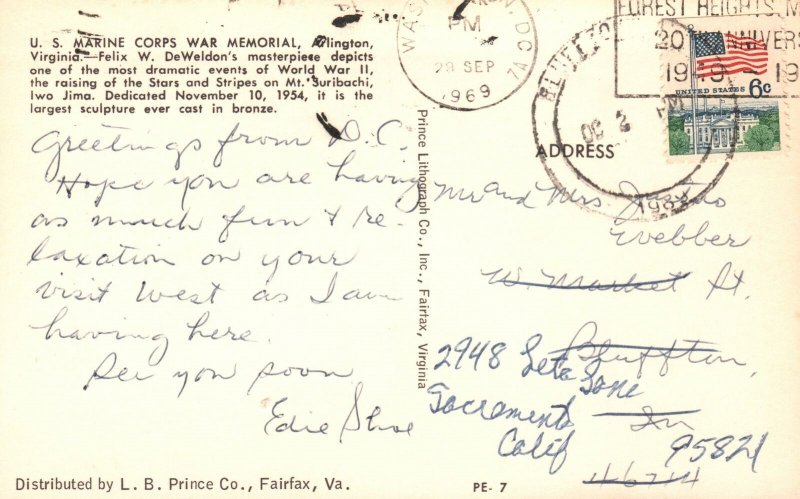 U. S. MARINE CORPS WAR MEMORIAL, Arlington,
Virginia.—Felix W. DeWeldon's masterpiece depicts
one of the most dramatic events of World War II,
the raising of the Stars and Stripes on Mt. Suribachi,
Iwo Jima. Dedicated November 10, 1954, it is the
largest sculpture ever cast in bronze.
Greetings from D.C.
Hope you are having
as much fun & re-
laxation on your
visit West as I am
having here.
See you soon
Edie
Distributed by L. B. Prince Co., Fairfax, Va.
Prince Lithograph Co., Inc., Fairfax, Virginia
PE- 7
PM
29 SEP
1969
FOREST HEIGHTS, M
20 ANNIVERS
1949 - 19
UNITED STATES 6c
OC 2 PM
ADDRESS
Mr and Mrs. Justus
Webber
W. Market St.
Bluffton,
In
46714
2948 Leta Lane
Sacramento
Calif 95821